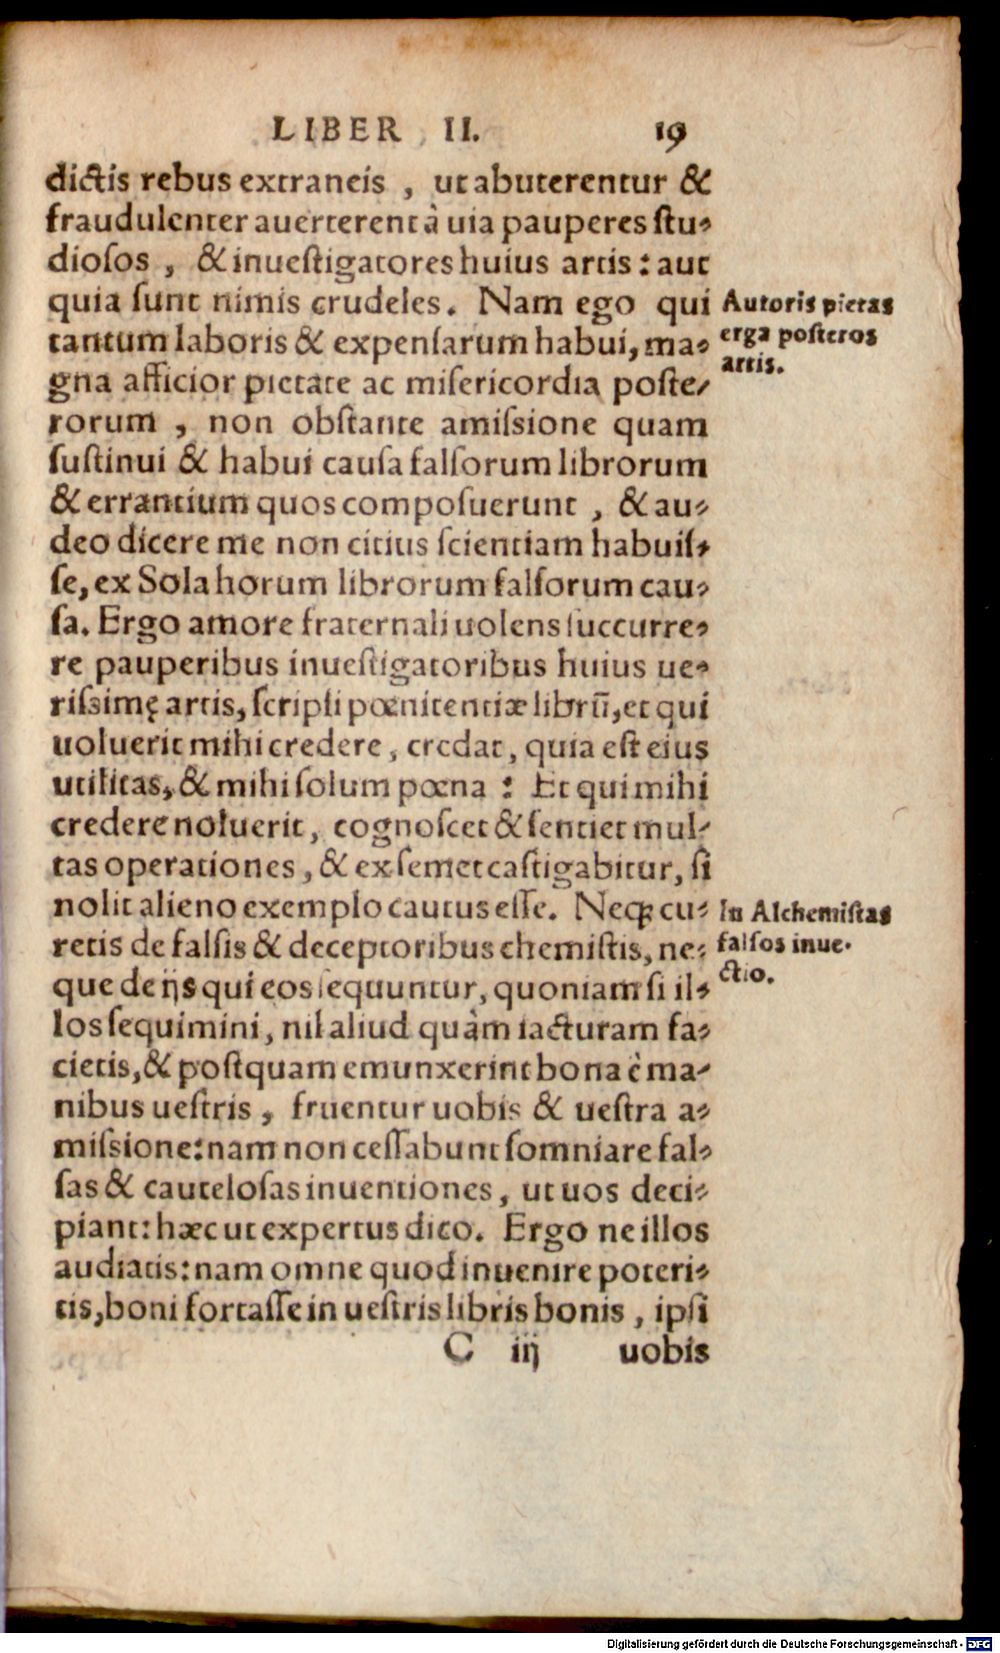 LIBER II. 19
dictis rebus extraneis, ut abuterentur &
fraudulenter auerterent à uia pauperes stu-
diosos, & inuestigatores huius artis: aut
quia sunt nimis crudeles. Nam ego qui
tantum laboris & expensarum habui, ma-
gna afficior pietate ac misericordia poste-
rorum, non obstante amissione quam
sustinui & habui causa falsorum librorum
& errantium quos composuerunt, & au-
deo dicere me non citius scientiam habuis-
se, ex Sola horum librorum falsorum cau-
sa. Ergo amore fraternali uolens succurre-
re pauperibus inuestigatoribus huius ue-
rissimę artis, scripsi pœnitentiæ librũ, et qui
uoluerit mihi credere, credat, quia est eius
utilitas, & mihi solum pœna: Et qui mihi
credere noluerit, cognoscet & sentiet mul-
tas operationes, & ex semet castigabitur, si
nolit alieno exemplo cautus esse. Neqꝫ cu-
retis de falsis & deceptoribus chemistis, ne-
que de ijs qui eos sequuntur, quoniam si il-
los sequimini, nil aliud quàm iacturam fa-
cietis, & postquam emunxerint bona è ma-
nibus uestris, fruentur uobis & uestra a-
missione: nam non cessabunt somniare fal-
sas & cautelosas inuentiones, ut uos deci-
piant: hæc ut expertus dico. Ergo ne illos
audiatis: nam omne quod inuenire poteri-
tis, boni fortasse in uestris libris bonis, ipsi
C iij uobis
Autoris pietas
erga posteros
artis.
In Alchemistas
falsos inue-
ctio.
Digitalisierung gefördert durch die Deutsche Forschungsgemeinschaft - DFG